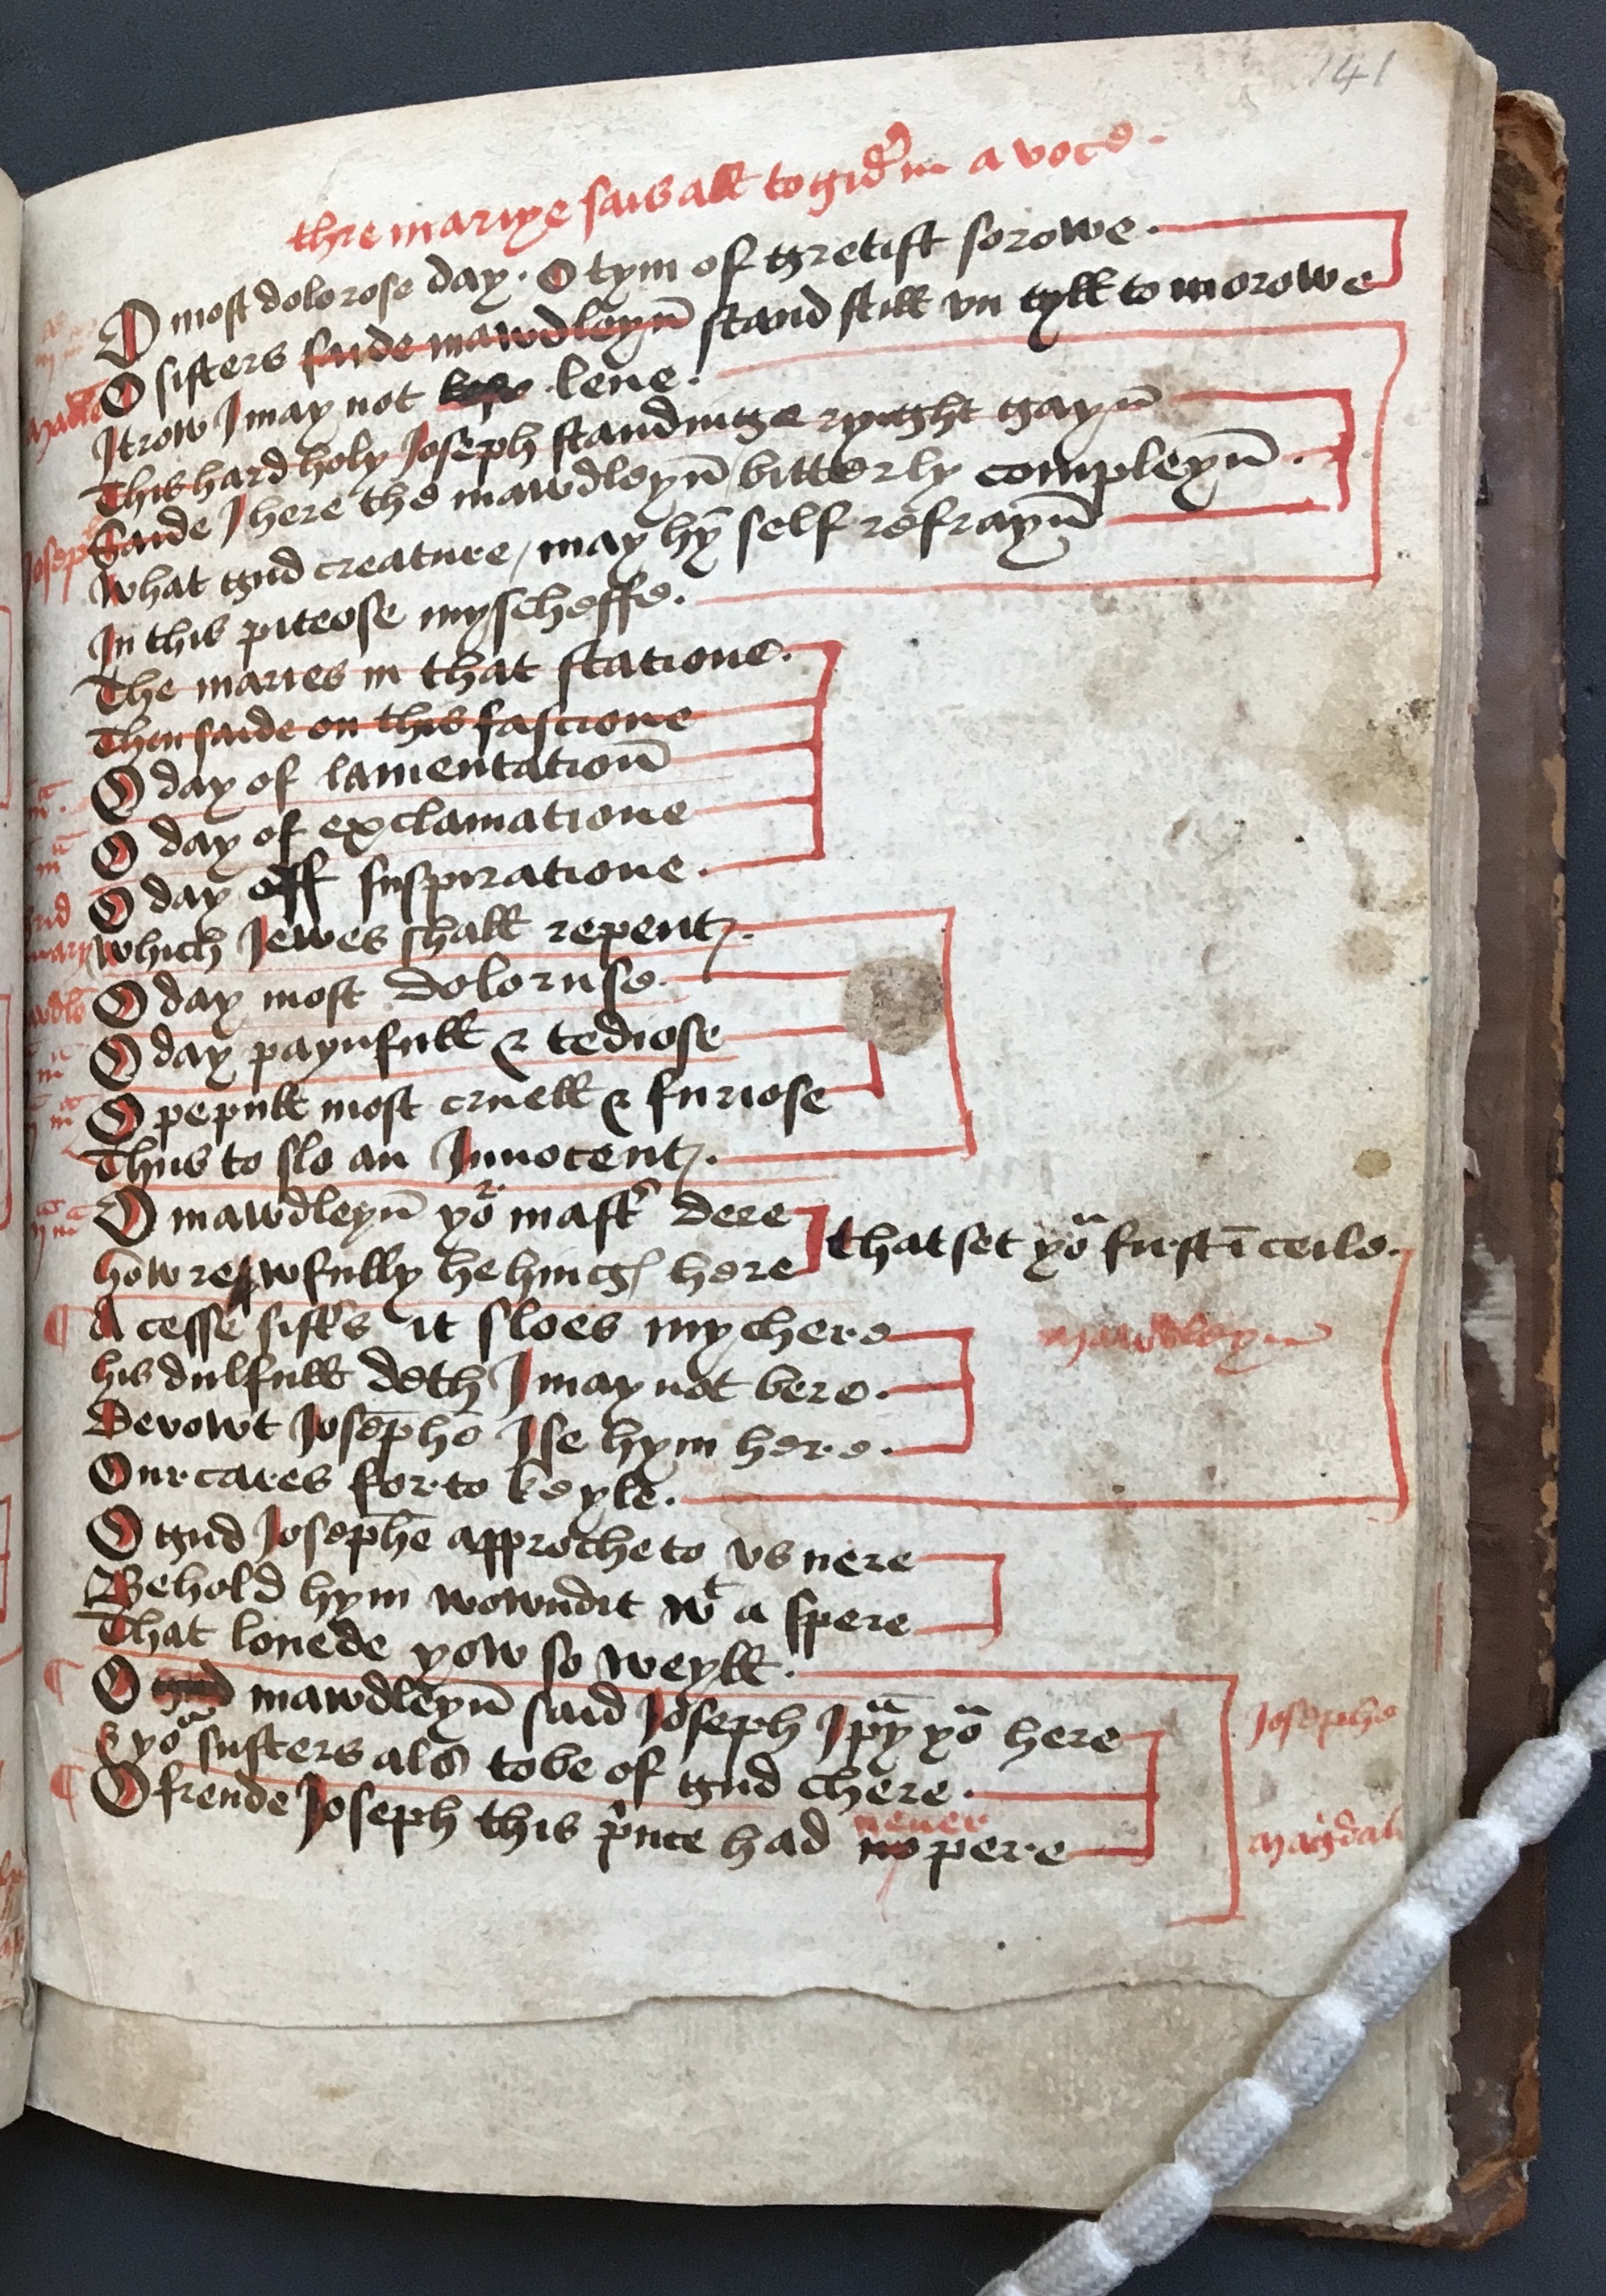 141
thre mariye sais all togid' in a voce.
O most dolorose day. O tym of gretist sorowe.
O sisters saide mawdleyn̄ stand still vn tyll to morowe
Madl
I trow I may not leue.
This hard holy Joseph standinge ryght gayn̄
Saide I here the mawdleyn̄ bitterly compleyn̄.
Joseph
What gud creature, may hȳ self refrayn̄
In this piteose myscheffe.
The maries in that statione.
Then saide on this fascione
O day of lamentation̄
O day of exclamatione
O day off suspiratione.
which Jewes shall repent.
O day most doloruse.
O day paynfull & tediose
O pepull most cruell & furiose
Thus to slo an Innocent.
O mawdleyn̄ yor mastr dere
that set yō furst ī ceile.
how rewfully he hings here
A cesse sisters it sloes my chere
mawdleyn
his dulfull deth I may not bere.
Devowt Josephe I se hym here.
Our cares for to keyle.
O gud Josephe approche to vs nere
Behold hym wowndit wt a spere
That louede yow so weyll.
O mawdleyn̄ said Joseph I pray yō here
Josephe
& yor susters als to be of gud chere.
O frende Joseph this prince had no pere
neuer
Magdal